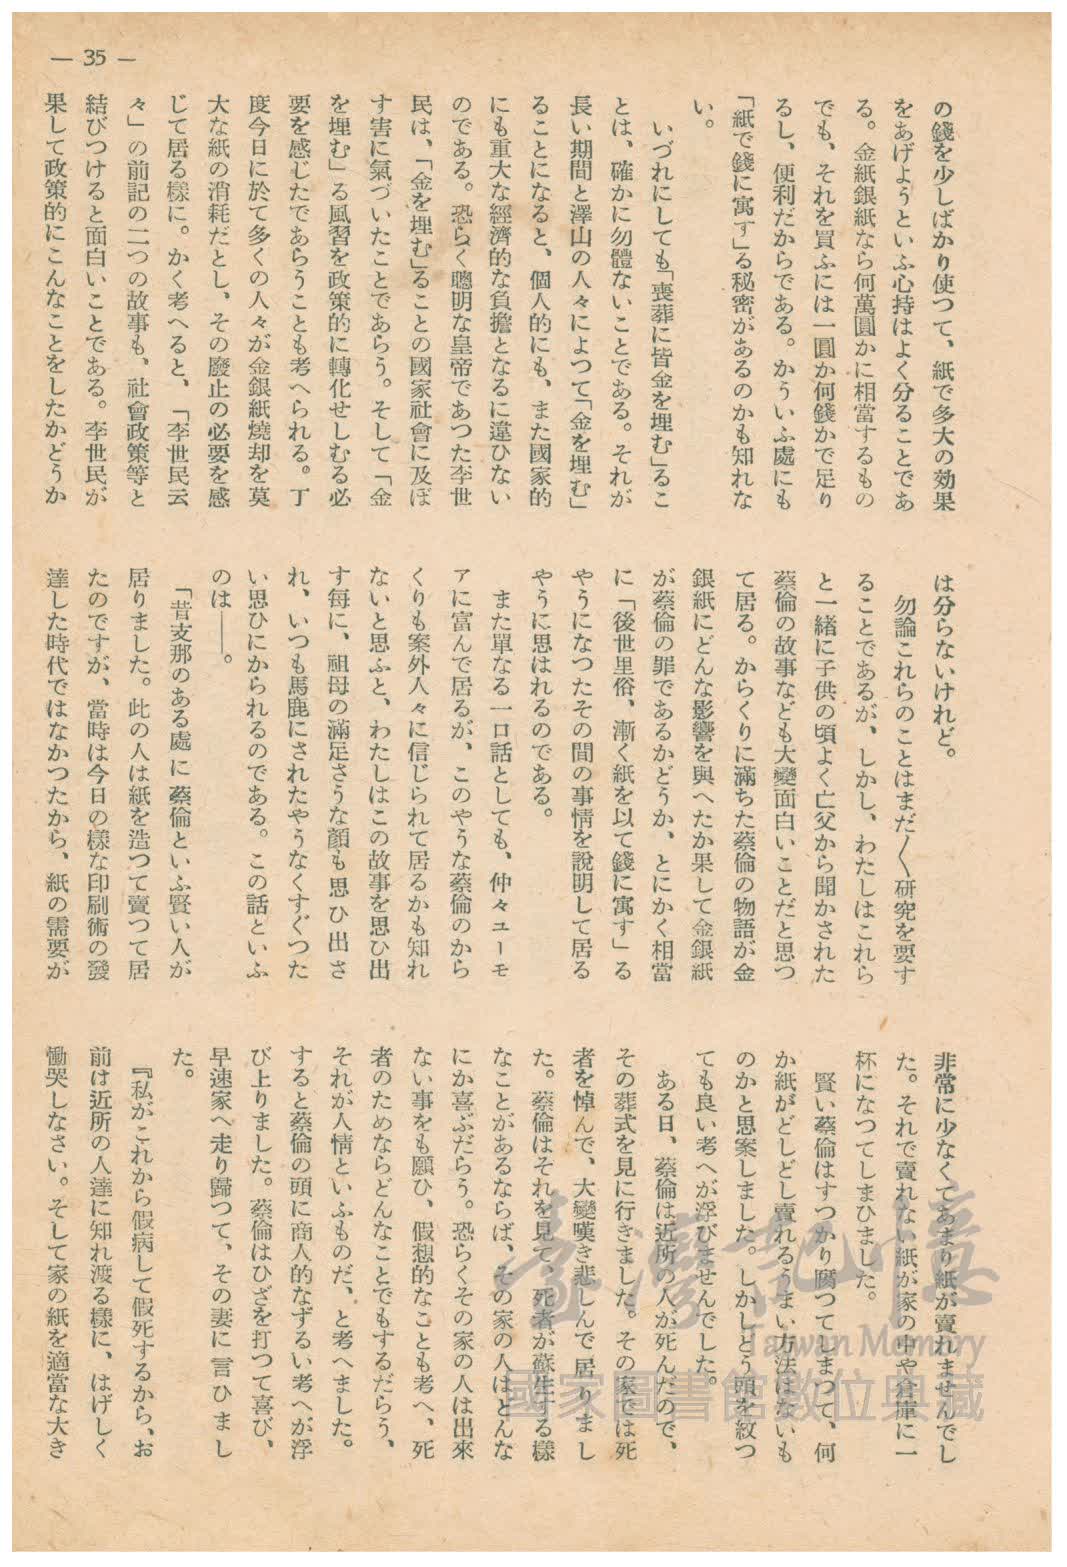 — 35 —
の錢を少しばかり使つて、紙で多大の効果
をあげようといふ心持はよく分ることであ
る。金紙銀紙なら何萬圓かに相當するもの
でも、それを買ふには一圓か何錢かで足り
るし、便利だからである。かういふ處にも
「紙で錢に寓す」る秘密があるのかも知れな
い。
いづれにしても「喪葬に皆金を埋む」るこ
とは、確かに勿體ないことである。それが
長い期間と澤山の人々によつて「金を埋む」
ることになると、個人的にも、また國家的
にも重大な經濟的な負擔となるに違ひない
のである。恐らく聰明な皇帝であつた李世
民は、「金を埋む」ることの國家社會に及ぼ
す害に氣づいたことであらう。そして「金
を埋む」る風習を政策的に轉化せしむる必
要を感じたであらうことも考へられる。丁
度今日に於て多くの人々が金銀紙燒却を莫
大な紙の消耗だとし、その廢止の必要を感
じて居る樣に。かく考へると、「李世民云
々」の前記の二つの故事も、社會政策等と
結びつけると面白いことである。李世民が
果して政策的にこんなことをしたかどうか
は分らないけれど。
勿論これらのことはまだ〳〵研究を要す
ることであるが、しかし、わたしはこれら
と一緒に子供の頃よく亡父から聞かされた
蔡倫の故事なども大變面白いことだと思つ
て居る。からくりに滿ちた蔡倫の物語が金
銀紙にどんな影響を與へたか果して金銀紙
が蔡倫の罪であるかどうか、とにかく相當
に「後世里俗、漸く紙を以て錢に寓す」る
やうになつたその間の事情を說明して居る
やうに思はれるのである。
また單なる一口話としても、仲々ユーモ
アに富んで居るが、このやうな蔡倫のから
くりも案外人々に信じられて居るかも知れ
ないと思ふと、わたしはこの故事を思ひ出
す每に、祖母の滿足さうな顏も思ひ出さ
れ、いつも馬鹿にされたやうなくすぐつた
い思ひにかられるのである。この話といふ
のは——。
「昔支那のある處に蔡倫といふ賢い人が
居りました。此の人は紙を造つて賣つて居
たのですが、當時は今日の樣な印刷術の發
達した時代ではなかつたから、紙の需要が
非常に少なくてあまり紙が賣れませんでし
た。それで賣れない紙が家の中や倉庫に一
杯になつてしまひました。
賢い蔡倫はすつかり腐つてしまつて、何
か紙がどしどし賣れるうまい方法はないも
のかと思案しました。しかしどう頭を絞つ
ても良い考へが浮びませんでした。
ある日、蔡倫は近所の人が死んだので、
その葬式を見に行きました。その家では死
者を悼んで、大變嘆き悲しんで居りまし
た。蔡倫はそれを見て、死者が蘇生する樣
なことがあるならば、その家の人はどんな
にか喜ぶだらう。恐らくその家の人は出來
ない事をも願ひ、假想的なことも考へ、死
者のためならどんなことでもするだらう、
それが人情といふものだ、と考へました。
すると蔡倫の頭に商人的なずるい考へが浮
び上りました。蔡倫はひざを打つて喜び、
早速家へ走り歸つて、その妻に言ひまし
た。
『私がこれから假病して假死するから、お
前は近所の人達に知れ渡る樣に、はげしく
慟哭しなさい。そして家の紙を適當な大き
臺灣記憶
Taiwan Memory
國家圖書館數位典藏